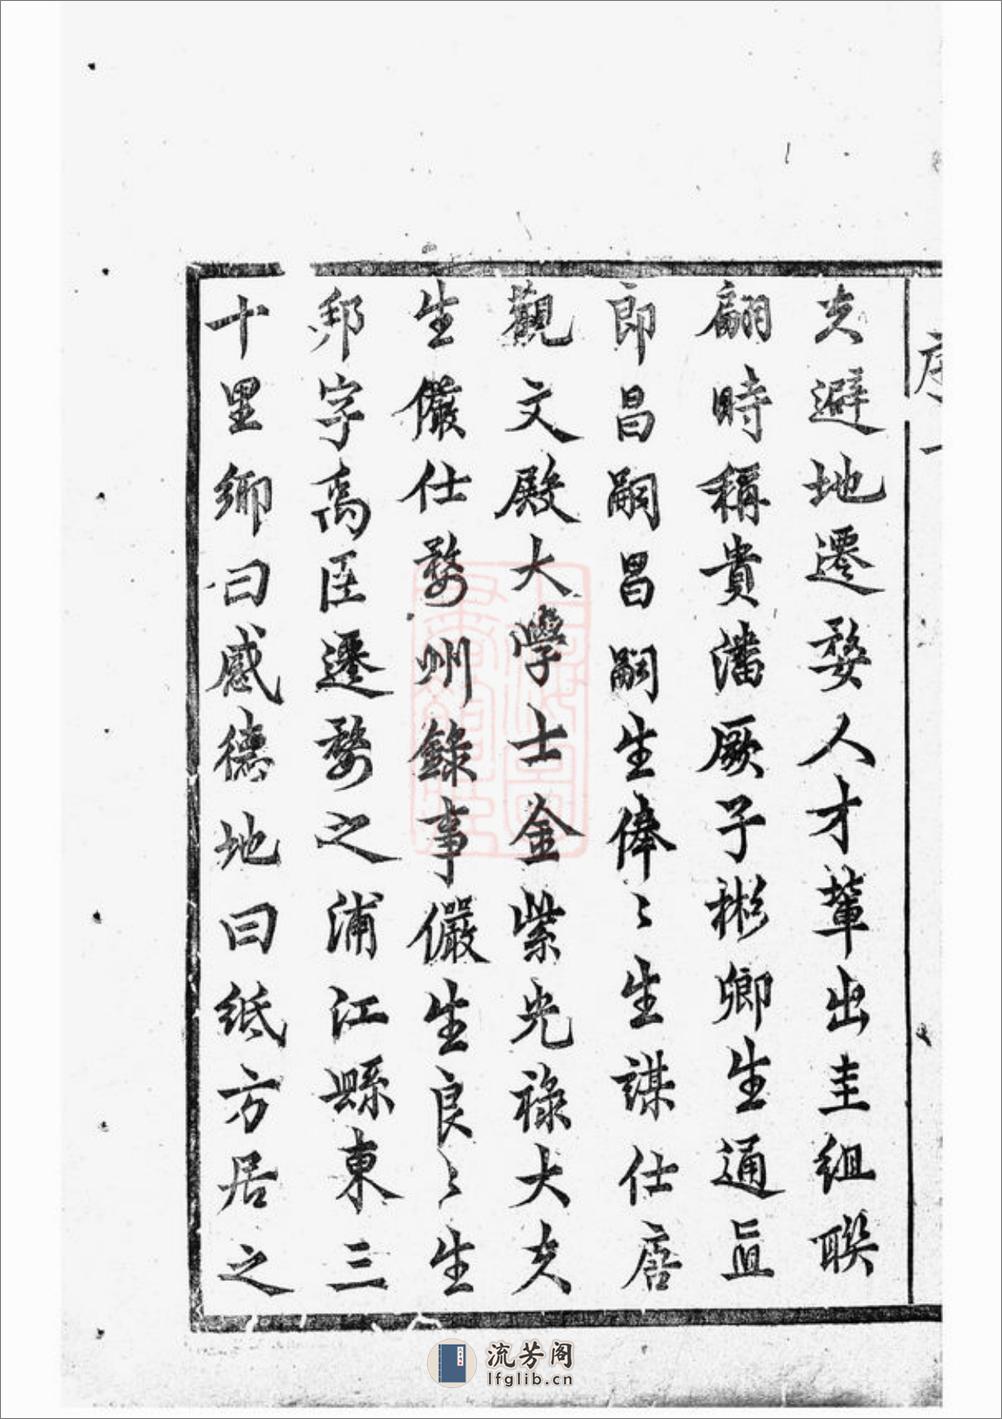 序一
夫避地遷婺人才輩出圭組聯
翩時稱貴潘厥子彬卿生通直
郎昌嗣昌嗣生俸〻生謀仕唐
觀文殿大學士金紫光祿大夫
生儼仕婺州錄事儼生良〻生
邦字禹臣遷婺之浦江縣東三
十里鄉曰感德地曰紙方居之
流芳阁
lfglib.cn